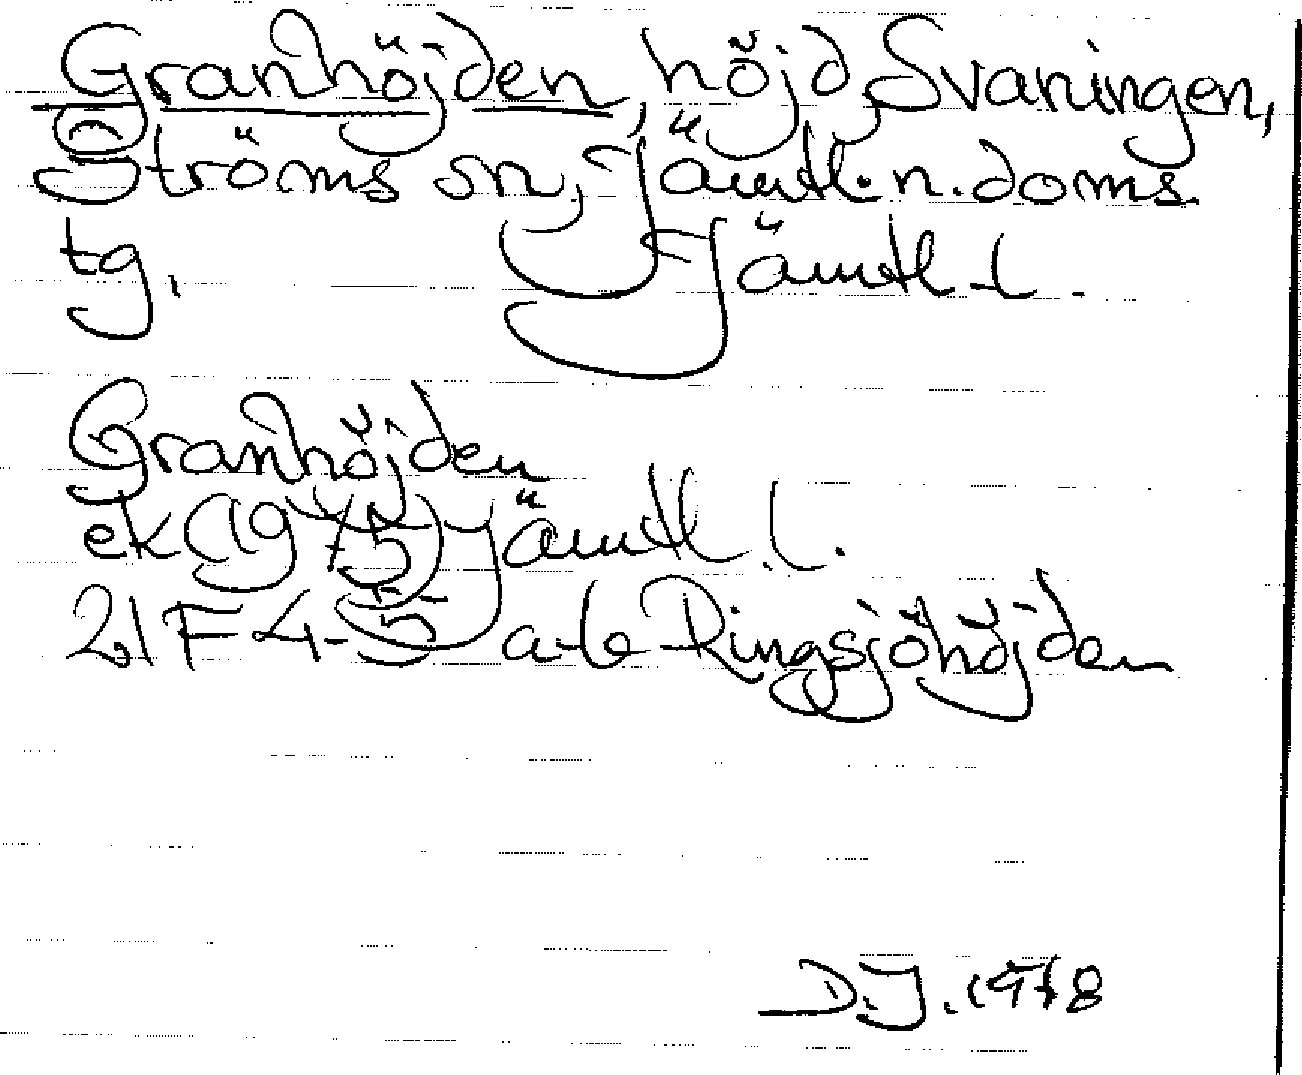 Granhöjden, höjd Svaningen,
Ströms sn, Jämtl. n. doms.
tg. Jämtl. l.
Granhöjden
ek (1975) Jämtl. l.
21F 4-5 a-b Ringsjöhöjden
D.J. 1978